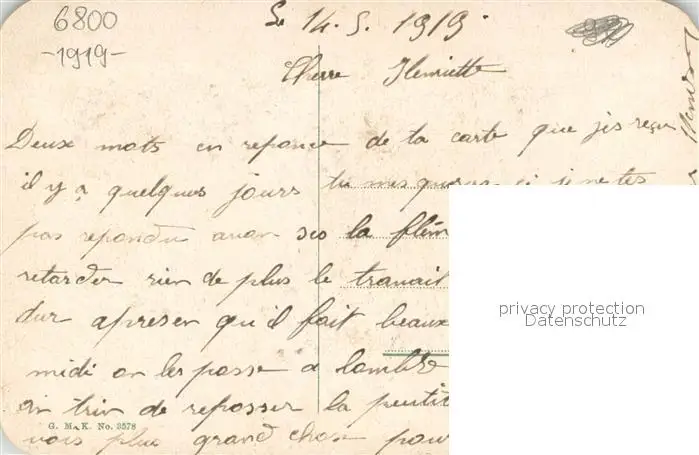 6800
-1919-
Le 14. 5. 1919.
Cherre Henriette
Deux mots en reponce de ta carte que jis reçu
il y a quelques jours tu mes si je ne tes
pas repondu avan la flem
retarder rien de plus le travail
dur apresen qu'il fait beaux
midi on les passe a lombre
on trin de reposser la peutit
vois plus grand chose pour
G. M. K. No. 3578
privacy protection
Datenschutz